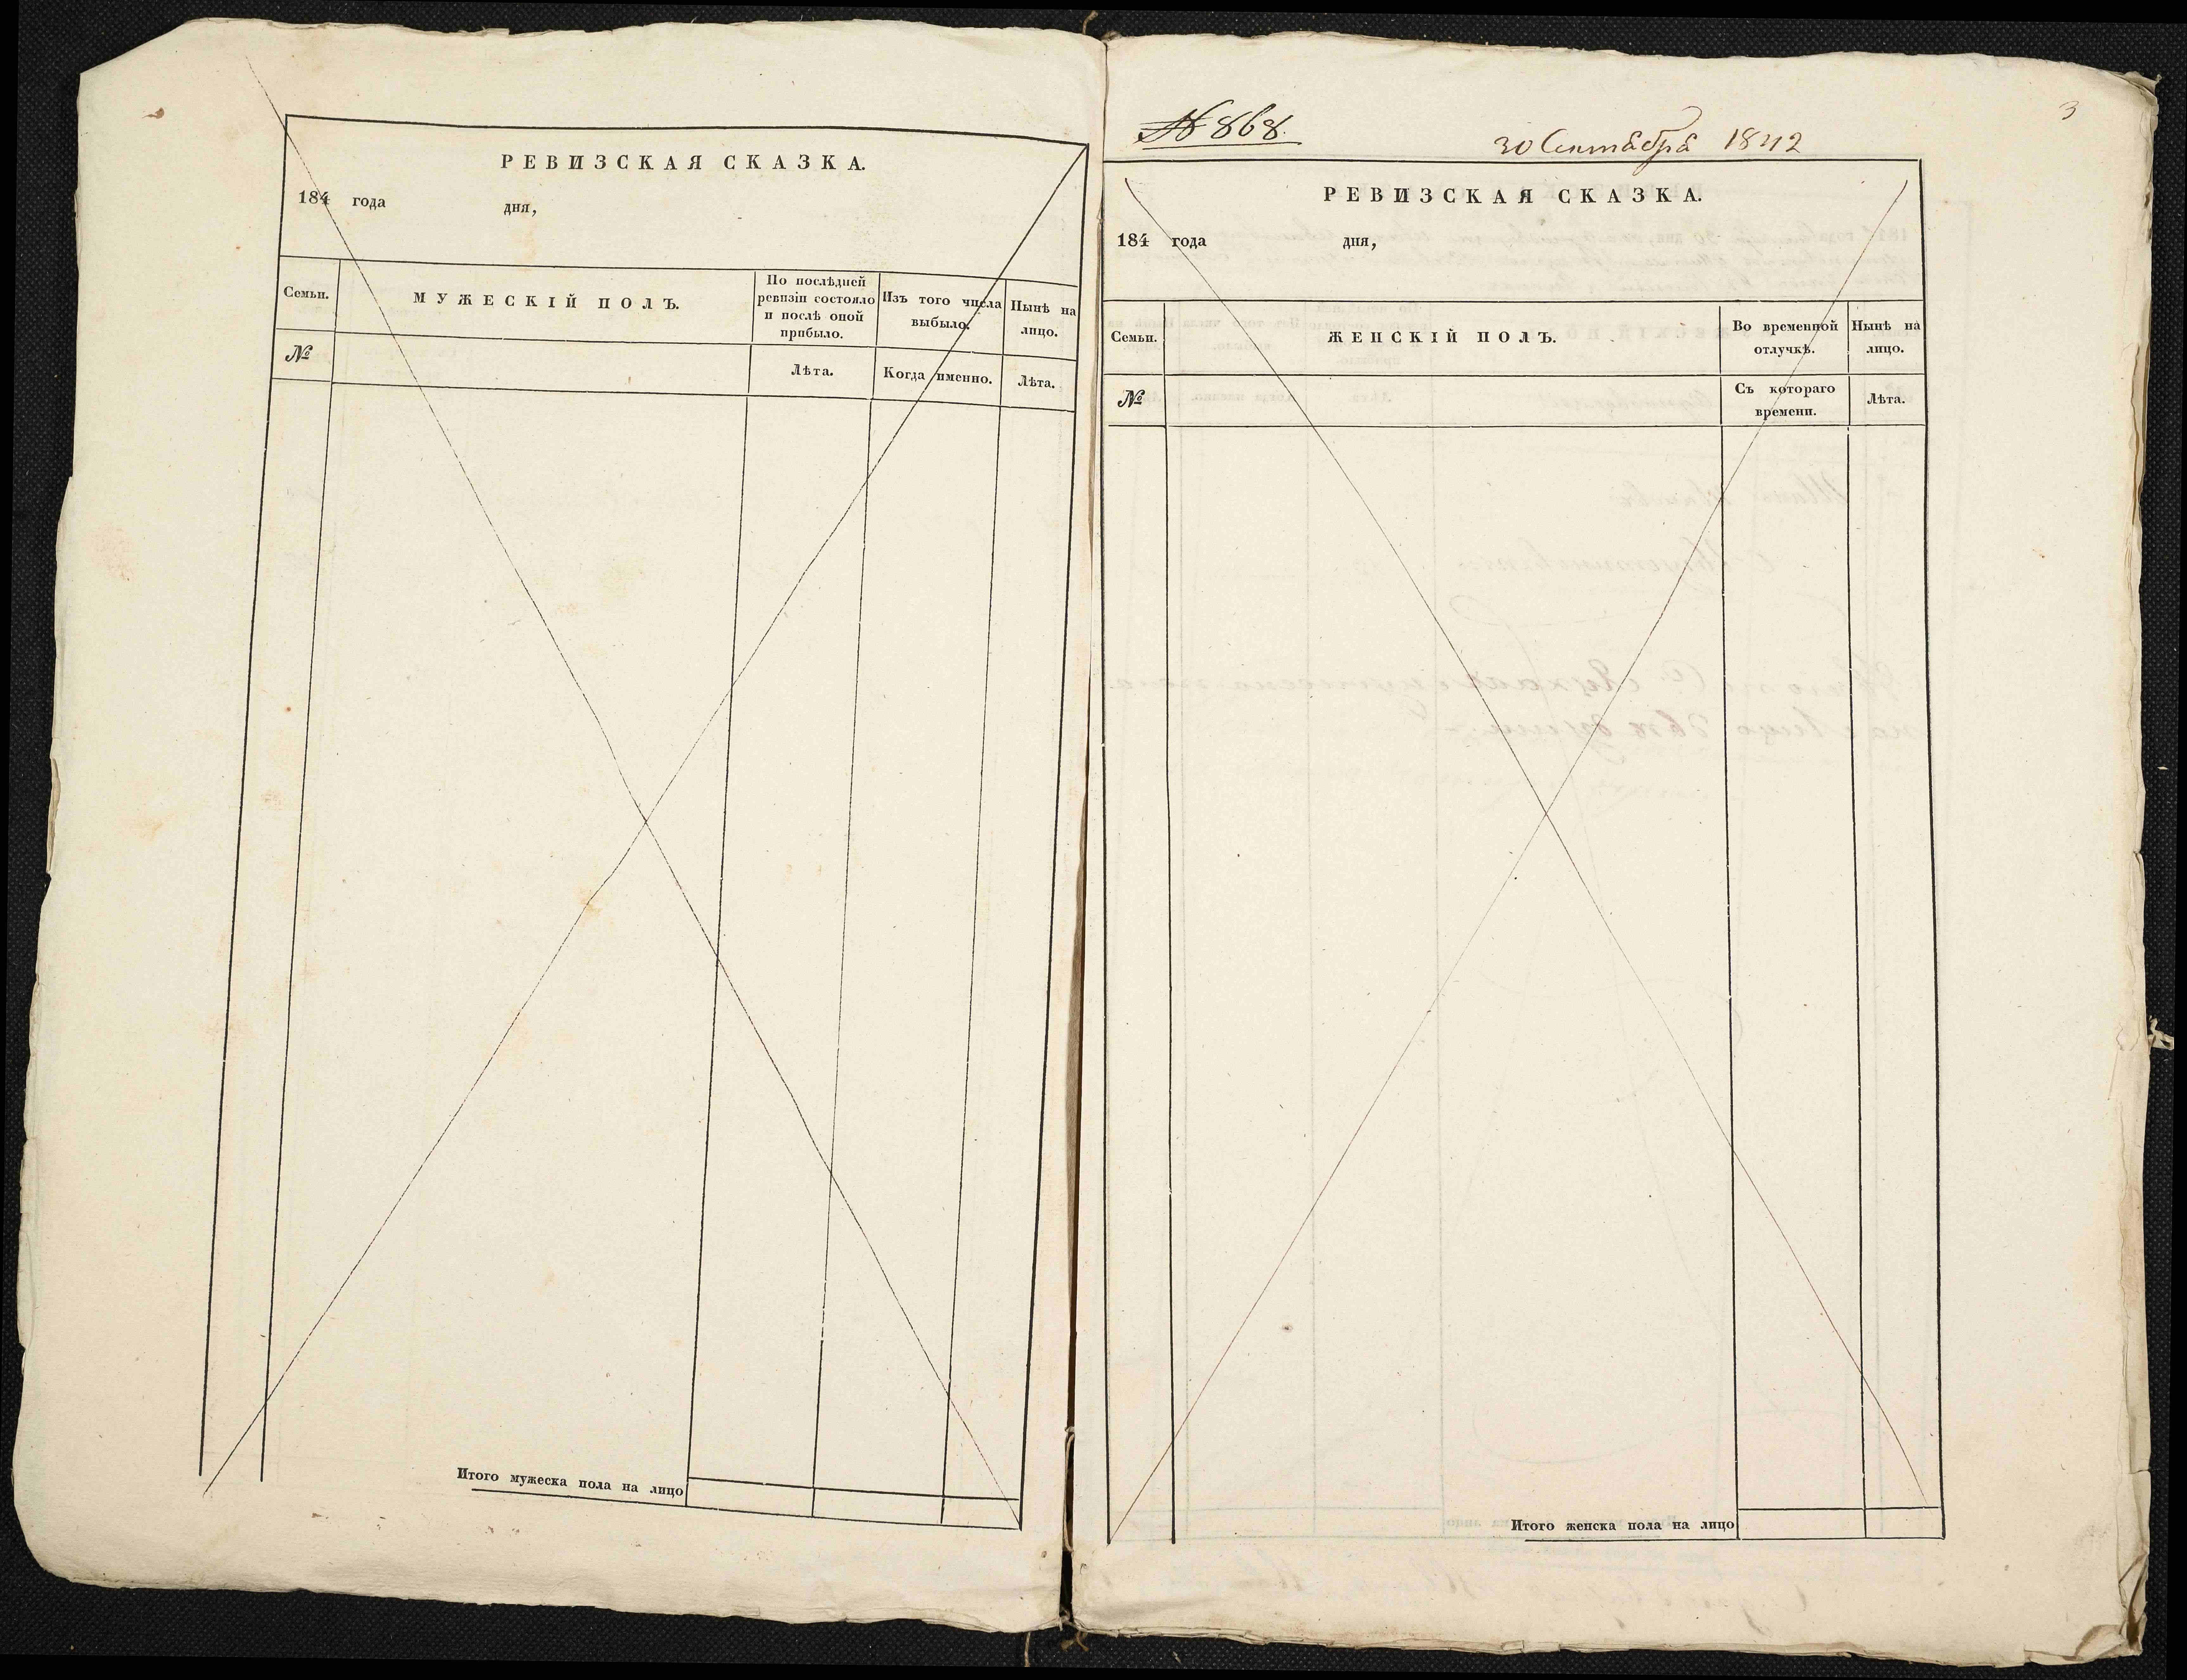 РЕВИЗСКАЯ СКАЗКА.
184 года дня,
Семьи.
МУЖЕСКІЙ ПОЛЪ.
По послѣдней
ревизіи состояло
и послѣ оной
прибыло.
Изъ того числа
выбыло.
Нынѣ на
лицо.
№
Лѣта.
Когда именно.
Лѣта.
Итого мужеска пола на лицо
3
№ 868.
30 Сентября 1842
РЕВИЗСКАЯ СКАЗКА.
184 года дня,
Семьи.
ЖЕНСКІЙ ПОЛЪ.
Во временной
отлучкѣ.
Нынѣ на
лицо.
№
Съ котораго
времени.
Лѣта.
Итого женска пола на лицо